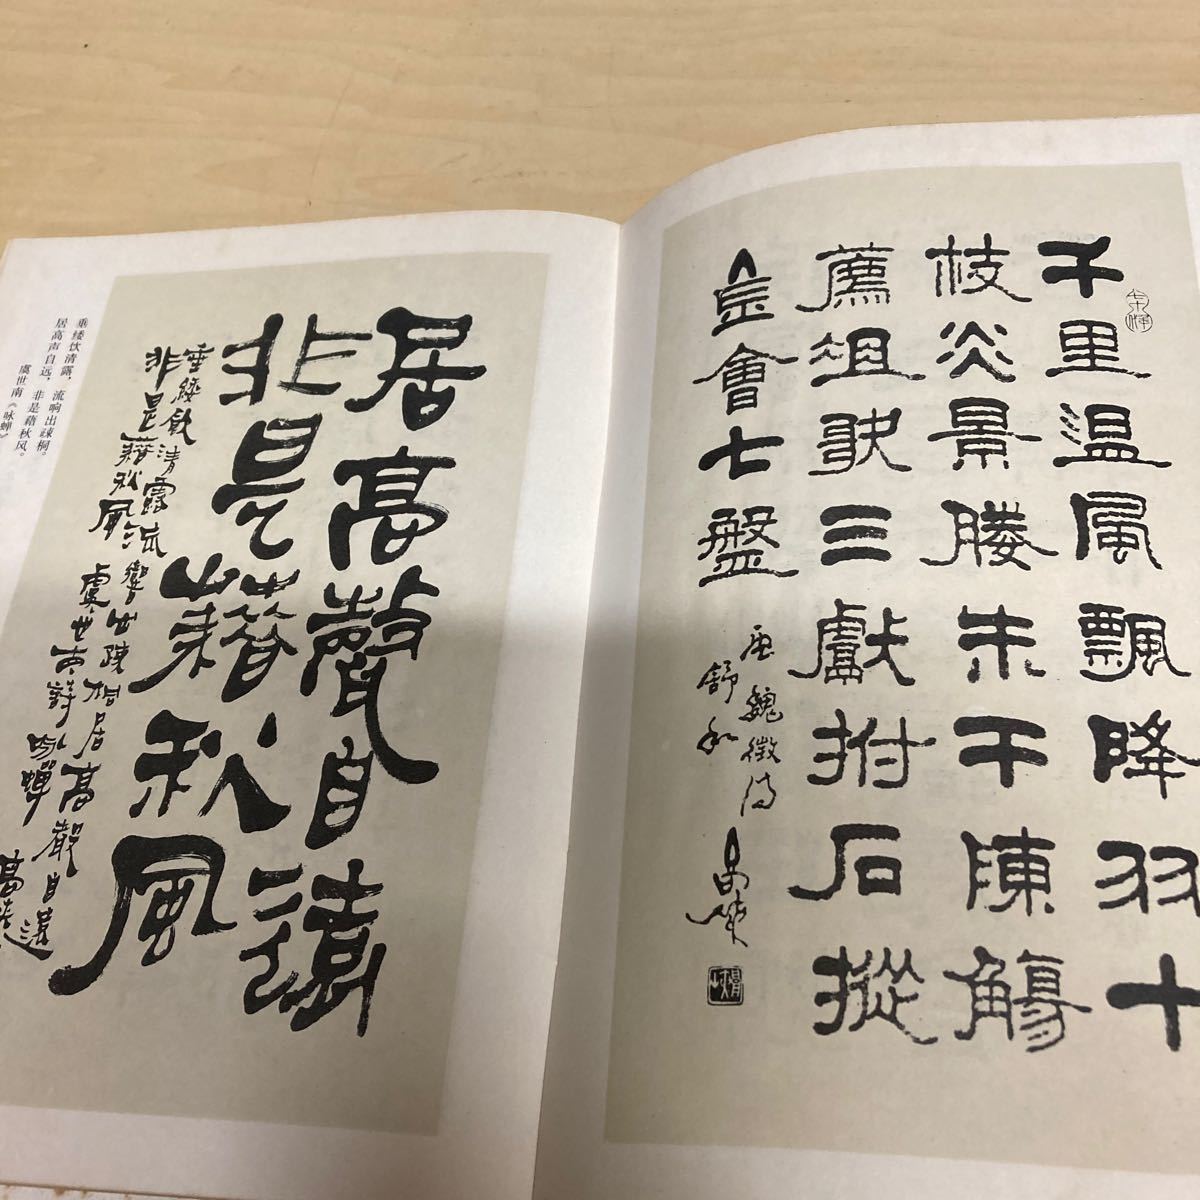 千里温風飄降羽十
枝炎景勝朱干陳觴
薦俎歌三獻拊石摐
金會七盤
唐魏徵詩
舒和
居高聲自遠
非是藉秋風
垂緌飲清露流響出疎桐居高聲自遠
非是藉秋風 虞世南詩咏蟬
垂緌饮清露，流响出疎桐。
居高声自远，非是藉秋风。
虞世南《咏蝉》